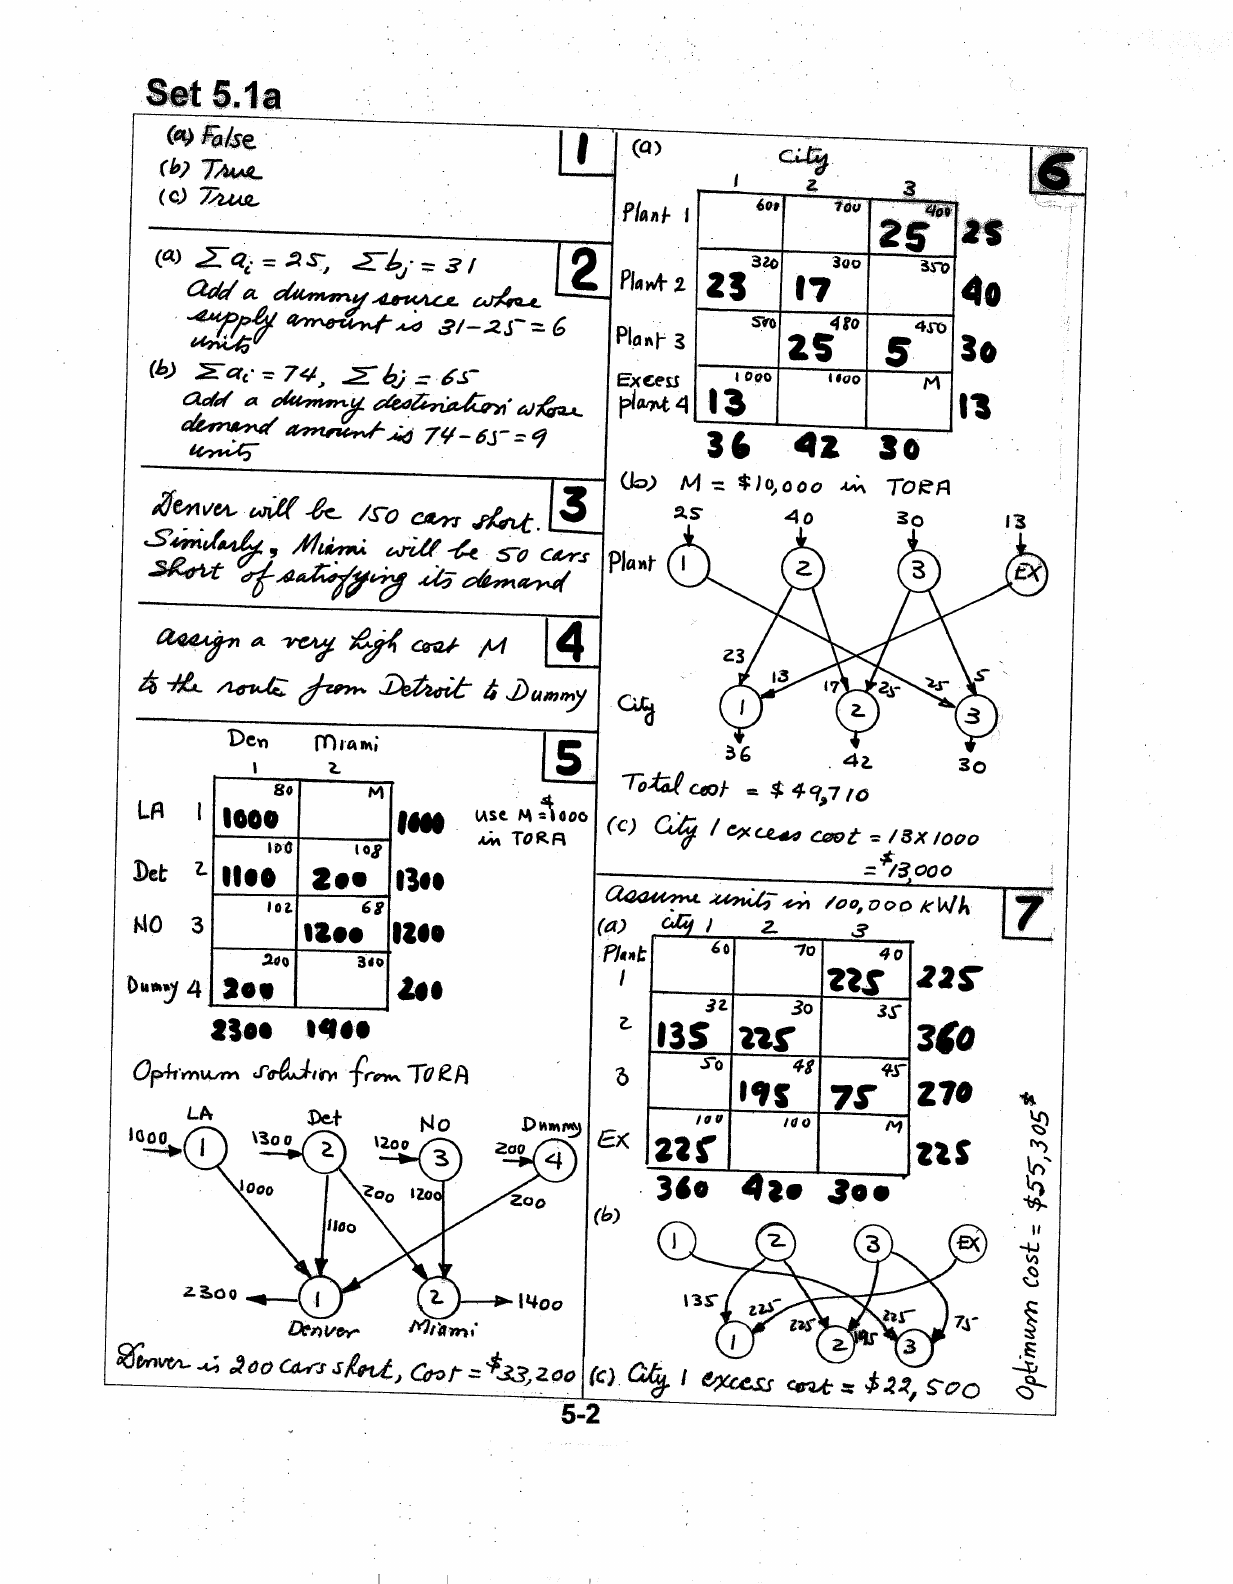 Set 5.1a
(a) False
1
(b) True
(c) True
(a) Σ ai = 25, Σ bj = 31
2
Add a dummy source whose
supply amount is 31-25 = 6
units
(b) Σ ai = 74, Σ bj = 65
Add a dummy destination whose
demand amount is 74-65 = 9
units
3
Denver will be 150 cars short.
Similarly, Miami will be 50 cars
short of satisfying its demand
4
Assign a very high cost M
to the route from Detroit to Dummy
5
Den Miami
1 2
80 M
LA 1 1000 1000
use M = $1000
in TORA
100 108
Det 2 1100 200 1300
102 68
NO 3 1200 1200
200 300
Dummy 4 200 200
2300 1900
Optimum solution from TORA
LA Det NO Dummy
1000 1 1300 2 1200 3 200 4
1000 200 1200 200
1100
2300 1 2 1400
Denver Miami
Denver is 200 cars short, Cost = $33,200
6
(a) City
1 2 3
600 700 400
Plant 1 25 25
320 300 350
Plant 2 23 17 40
500 480 450
Plant 3 25 5 30
Excess 1000 1000 M
plant 4 13 13
36 42 30
(b) M = $10,000 in TORA
25 40 30 13
Plant 1 2 3 EX
23 13 17 25 25 5
City 1 2 3
36 42 30
Total cost = $49,710
(c) City 1 excess cost = 13x1000
= $13,000
Assume units in 100,000 kWh
7
(a) City 1 2 3
Plant 60 70 40
1 225 225
32 30 35
2 135 225 360
50 48 45
3 195 75 270
100 100 M
EX 225 225
360 420 300
(b)
1 2 3 EX
135 225 225 195 225 75
1 2 3
(c) City 1 excess cost = $22,500
Optimum cost = $55,305*
5-2